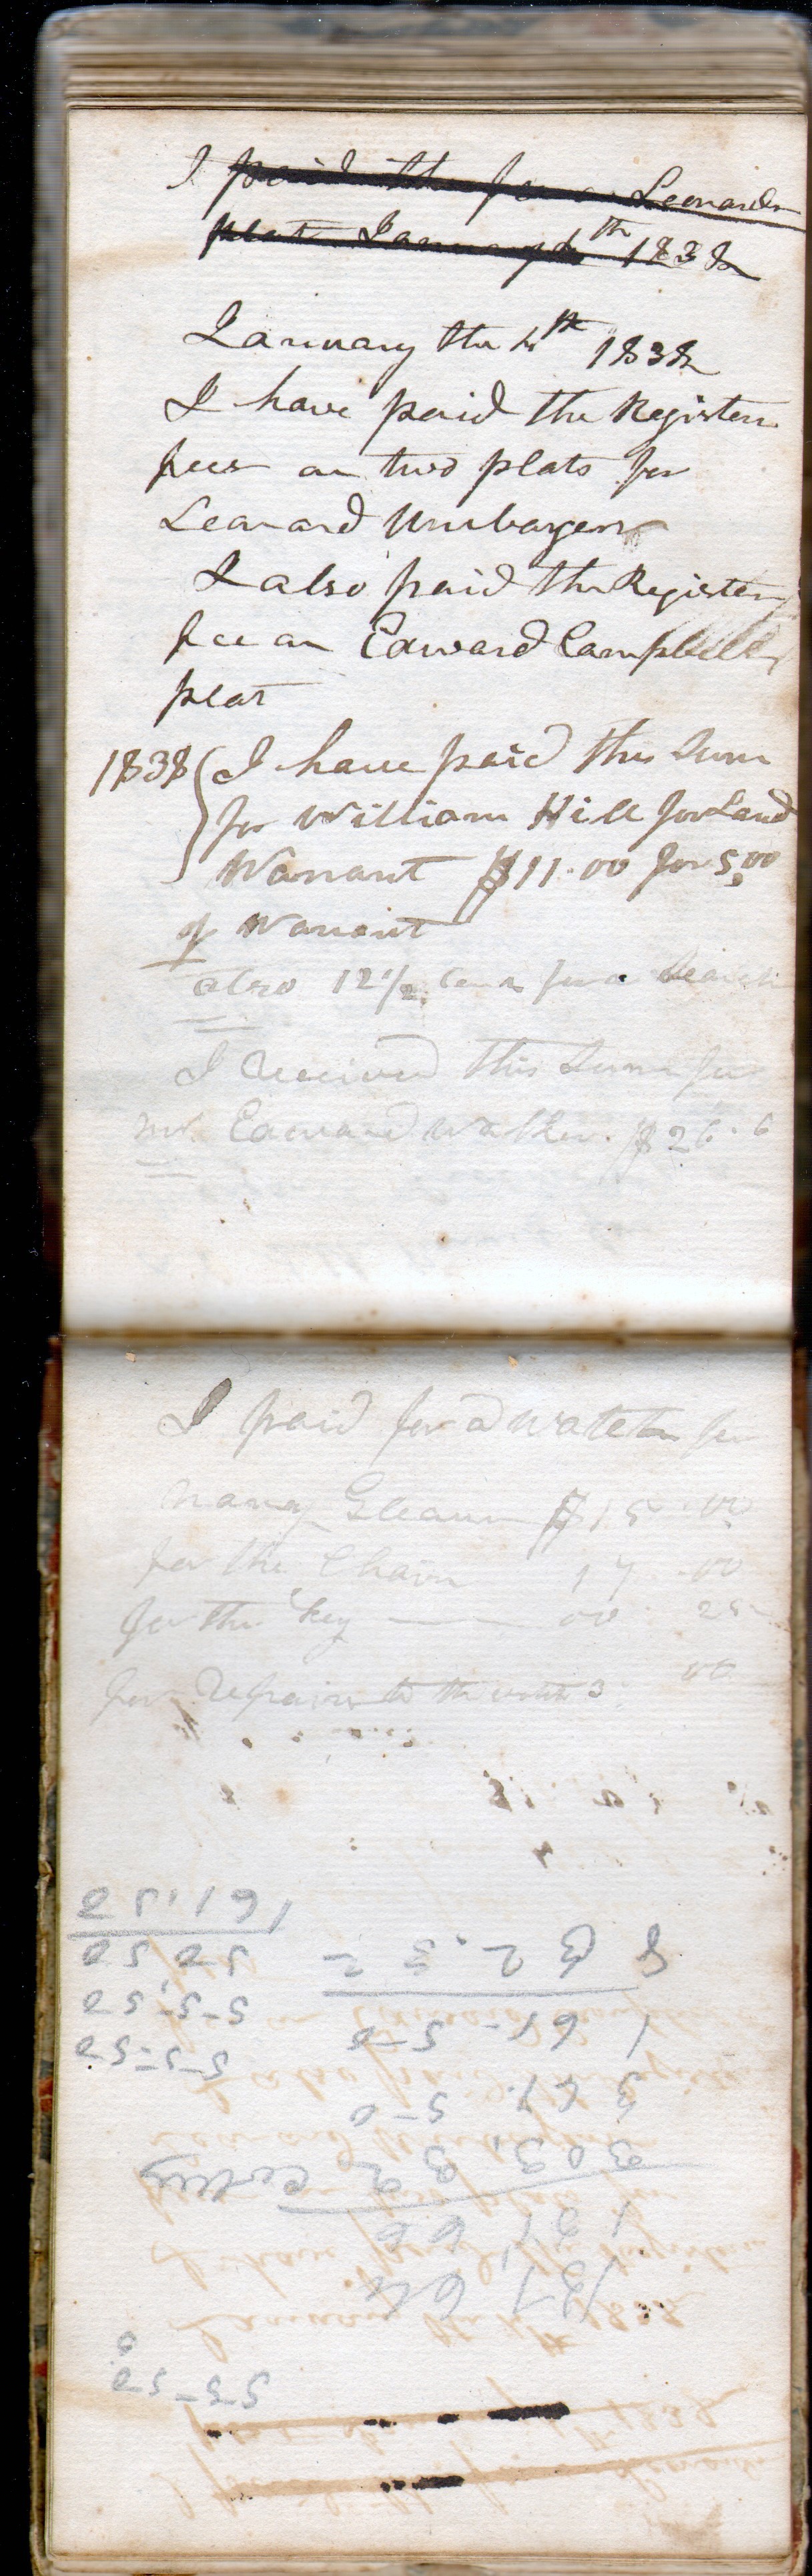 I paid the fee on Leonards
plat January 4th 1838
January the 4th 1838
I have paid the Registers
fees on two plats for
Leonard Umbarger
I also paid the Register
fee on Edward Campbells
plat
1838 I have paid this Sum
for William Hill for Land
Warrant $11.00 for 500
of Warrant
also 12 1/2 Cents for a Search
I Received this Sum for
Mr. Edward Walker. $26.6
I paid for a watch for
Nancy $15.00
for the Chain 17.00
for the Key 00 25
for Repairs to the watch 3. 00
55-50
187 66
151 66
303,32
367.50
161-50
832.32
55-50
55,50
50,50
161,50